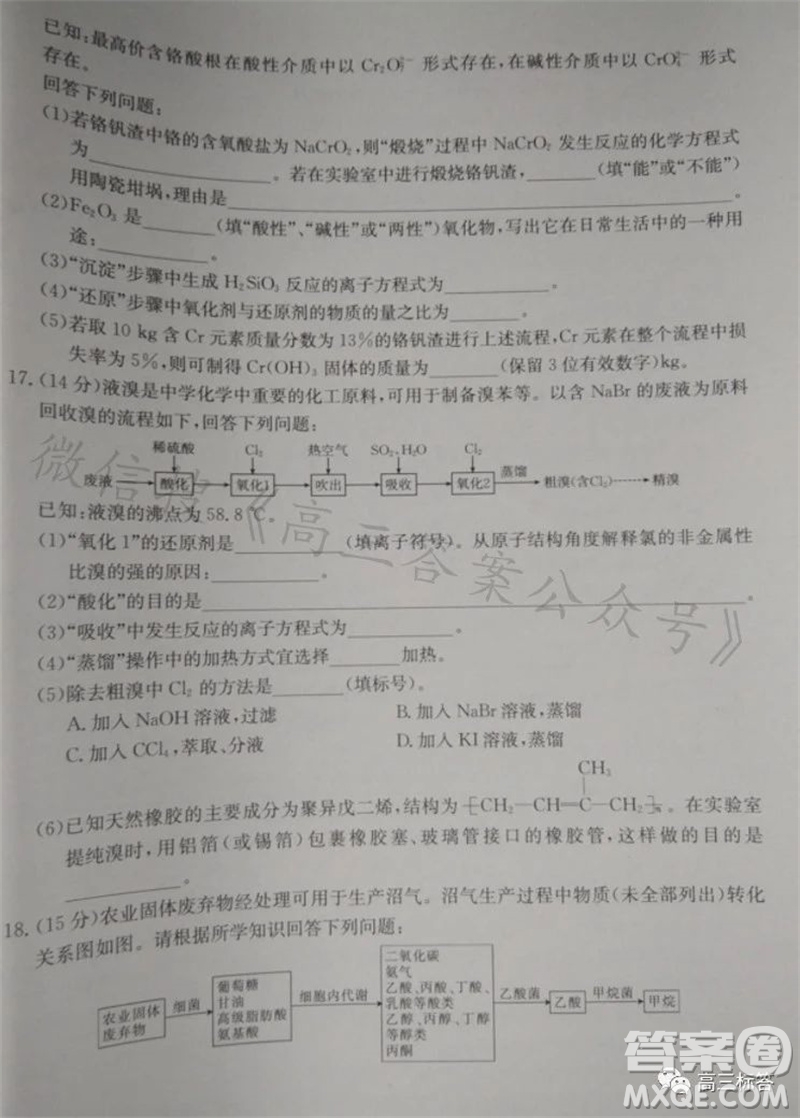 已知:最高价含铬酸根在酸性介质中以 Cr₂O₇²⁻ 形式存在,在碱性介质中以 CrO₄²⁻ 形式
存在。
回答下列问题:
(1)若铬钒渣中铬的含氧酸盐为 NaCrO₂,则“煅烧”过程中 NaCrO₂ 发生反应的化学方程式
为________。若在实验室中进行煅烧铬钒渣,________(填“能”或“不能”)
用陶瓷坩埚,理由是________。
(2)Fe₂O₃ 是________(填“酸性”、“碱性”或“两性”)氧化物,写出它在日常生活中的一种用
途:________。
(3)“沉淀”步骤中生成 H₂SiO₃ 反应的离子方程式为________。
(4)“还原”步骤中氧化剂与还原剂的物质的量之比为________。
(5)若取 10 kg 含 Cr 元素质量分数为 13%的铬钒渣进行上述流程,Cr 元素在整个流程中损
失率为 5%,则可制得 Cr(OH)₃ 固体的质量为________(保留 3 位有效数字)kg。
17.(14 分)液溴是中学化学中重要的化工原料,可用于制备溴苯等。以含 NaBr 的废液为原料
回收溴的流程如下,回答下列问题:
稀硫酸 Cl₂ 热空气 SO₂、H₂O Cl₂
废液 酸化 氧化1 吹出 吸收 氧化2 蒸馏 粗溴(含Cl₂) 精溴
已知:液溴的沸点为 58.8 ℃。
(1)“氧化 1”的还原剂是________(填离子符号)。从原子结构角度解释氯的非金属性
比溴的强的原因:________。
(2)“酸化”的目的是________.
(3)“吸收”中发生反应的离子方程式为________。
(4)“蒸馏”操作中的加热方式宜选择________加热。
(5)除去粗溴中 Cl₂ 的方法是________(填标号)。
A. 加入 NaOH 溶液,过滤 B. 加入 NaBr 溶液,蒸馏
C. 加入 CCl₄,萃取、分液 D. 加入 KI 溶液,蒸馏
CH₃
(6)已知天然橡胶的主要成分为聚异戊二烯,结构为 [CH₂—CH═C—CH₂]ₙ。在实验室
提纯溴时,用铝箔(或锡箔)包裹橡胶塞、玻璃管接口的橡胶管,这样做的目的是
________。
18.(15 分)农业固体废弃物经处理可用于生产沼气。沼气生产过程中物质(未全部列出)转化
关系图如图。请根据所学知识回答下列问题:
农业固体
废弃物
细菌
葡萄糖
甘油
高级脂肪酸
氨基酸
细胞内代谢
二氧化碳
氨气
乙酸、丙酸、丁酸、
乳酸等酸类
乙醇、丙醇、丁醇
等醇类
丙酮
乙酸菌
乙酸
甲烷菌
甲烷
微信搜《高三答案公众号》
答案圈
MXQE.COM
高三标答